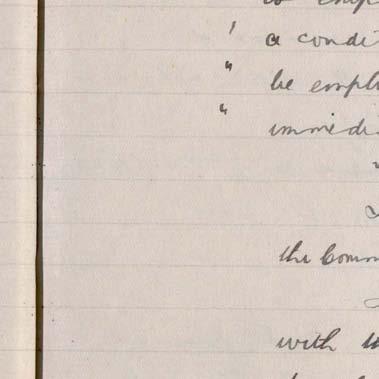 to empl
' a condi
" be emplo
" immedi
the Comm
with